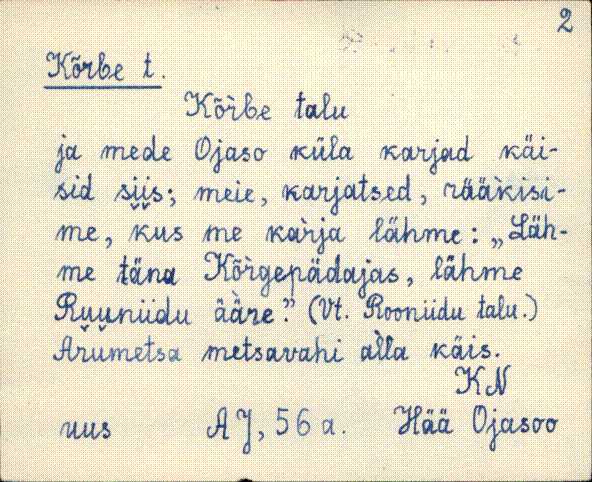 2
Kõrbe t.
Kõr̀be talu
ja mede Ojaso küla karjad käi-
sid siis; meie, karjatsed, rääk̀isi-
me, kus me kar̀ja lähme: „Läh-
me täna Kõr̀gepädajas, lähme
Ruuniidu ääre." (Vt. Rooniidu talu.)
Arumetsa metsavahi al̀la käis.
KN
uus AJ, 56 a. Hää Ojasoo